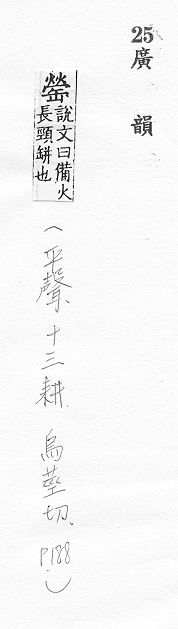 25
廣韻
罃說文曰備火
長頸缾也
(平聲.十三耕.烏莖切.P.188.)